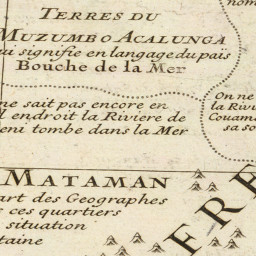 nom
TERRES DU
MUZUMBO ACALUNGA
ui signifie en langage du païs
Bouche de la Mer
ne sait pas encore en
l endroit la Riviere de
eni tombe dans la Mer
On ne
la Rivi
Couama
sa so
MATAMAN
art des Geographes
ce ces quartiers
situation
taine
ERE